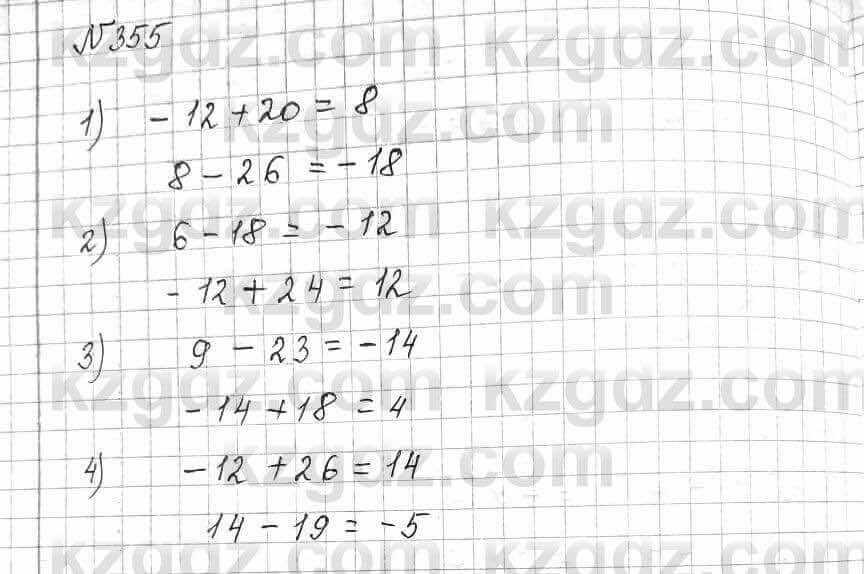 №355
1) - 12 + 20 = 8
8 - 26 = - 18
2) 6 - 18 = - 12
- 12 + 24 = 12
3) 9 - 23 = - 14
- 14 + 18 = 4
4) - 12 + 26 = 14
14 - 19 = - 5
kzgdz.com
kzgdz.com
kzgdz.com
kzgdz.com
kzgdz.com
kzgdz.com
kzgdz.com
kzgdz.com
kzgdz.com
kzgdz.com
kzgdz.com
kzgdz.com